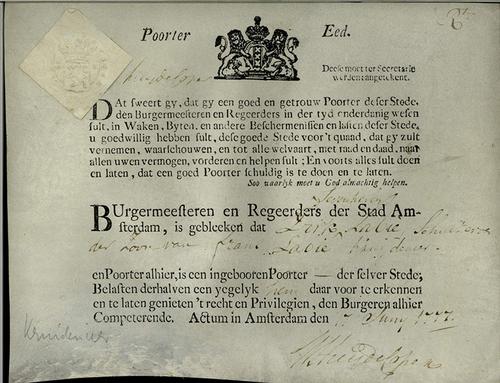 Poorter Eed.
Deese moet ter Secretarie
werden angetekent.
DAt sweert gy, dat gy een goed en getrouw Poorter deser Stede,
den Burgermeesteren en Regeerders in der tyd onderdanig wesen
sult, in Waken, Byten, en andere Beschermenissen en lasten deser Stede,
u goedwillig hebben sult, dese goede Stede voor 't quaad, dat gy zult
vernemen, waarschouwen, en tot alle welvaart, met raad en daad, naar
allen uwen vermogen, vorderen en helpen sult; En voorts alles sult doen
en laten, dat een goed Poorter schuldig is te doen en te laten.
Soo waarlyk moet u God almachtig helpen.
BUrgermeesteren en Regeerders der Stad Am-
sterdam, is gebleeken dat
Zoon van
en Poorter alhier, is een ingebooren Poorter — der selver Stede;
Belasten derhalven een yegelyk hem daar voor te erkennen
en te laten genieten 't recht en Privilegien, den Burgeren alhier
Competerende. Actum in Amsterdam den 17 Juny 1777.